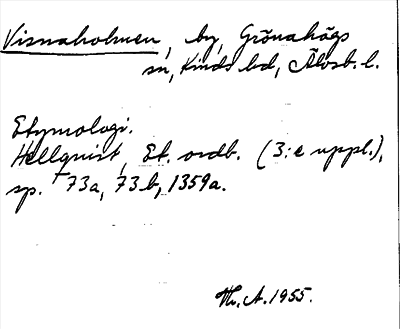 Visnaholmen, by, Grönahögs
sn, Kinds hd, Älvsb. l.
Etymologi.
Hellquist, Et. ordb. (3:e uppl.),
sp. 73a, 73b, 1359a.
Th. A. 1955.